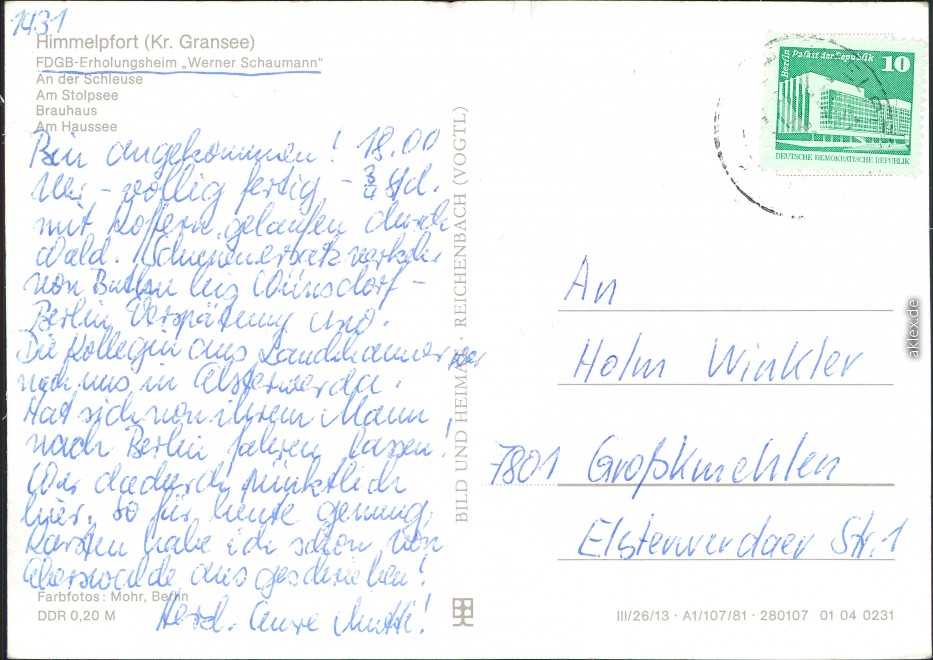 1431
Himmelpfort (Kr. Gransee)
FDGB-Erholungsheim „Werner Schaumann"
An der Schleuse
Am Stolpsee
Brauhaus
Am Haussee
Bin angekommen! 18.00
Uhr - völlig fertig - 3/4 Std.
mit Koffern gelaufen durch
Wald. Schienenersatzverkehr
von bis Wünsdorf -
Berlin Verspätung und.
Die Kollegin aus Lauchhammer war
nach uns in Elsterwerda.
Hat sich von ihrem Mann
nach Berlin fahren lassen!
War dadurch pünktlich
hier. So für heute genung,
Karsten habe ich schon von
Eberswalde aus geschrieben!
Herzl. Eure Mutti!
Farbfotos: Mohr, Berlin
DDR 0,20 M
BILD UND HEIMAT REICHENBACH (VOGTL)
Berlin Palast der Republik 10
DEUTSCHE DEMOKRATISCHE REPUBLIK
An
Holm Winkler
7801 Großkmehlen
Elsterwerdaer Str. 1
III/26/13 · A1/107/81 · 280107 01 04 0231
aklex.de